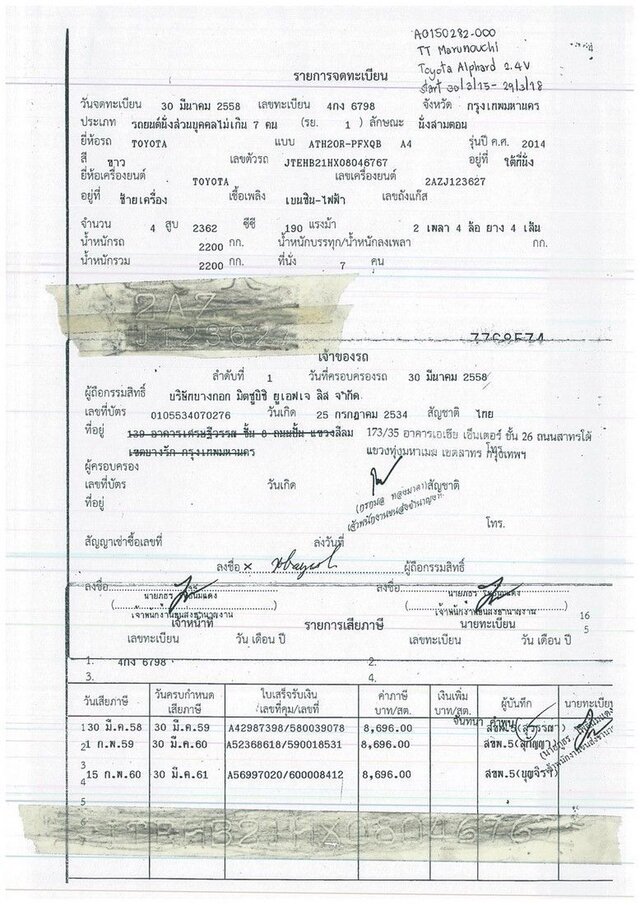 A0150282-000
TT Marunouchi
Toyota Alphard 2.4V
start 30/3/15 - 29/3/18
รายการจดทะเบียน
วันจดทะเบียน 30 มีนาคม 2558 เลขทะเบียน 4กง 6798 จังหวัด กรุงเทพมหานคร
ประเภท รถยนต์นั่งส่วนบุคคลไม่เกิน 7 คน (รย. 1 ) ลักษณะ นั่งสามตอน
ยี่ห้อรถ TOYOTA แบบ ATH20R-PFXQB A4 รุ่นปี ค.ศ. 2014
สี ขาว เลขตัวรถ JTEHB21HX08046767 อยู่ที่ ใต้ที่นั่ง
ยี่ห้อเครื่องยนต์ TOYOTA เลขเครื่องยนต์ 2AZJ123627
อยู่ที่ ซ้ายเครื่อง เชื้อเพลิง เบนซิน-ไฟฟ้า เลขถังแก๊ส
จำนวน 4 สูบ 2362 ซีซี 190 แรงม้า 2 เพลา 4 ล้อ ยาง 4 เส้น
น้ำหนักรถ 2200 กก. น้ำหนักบรรทุก/น้ำหนักลงเพลา กก.
น้ำหนักรวม 2200 กก. ที่นั่ง 7 คน
2AZ
J123627
เจ้าของรถ
ลำดับที่ 1 วันที่ครอบครองรถ 30 มีนาคม 2558
ผู้ถือกรรมสิทธิ์ บริษัทบางกอก มิตซูบิชิ ยูเอฟเจ ลิส จำกัด
เลขที่บัตร 0105534070276 วันเกิด 25 กรกฎาคม 2534 สัญชาติ ไทย
ที่อยู่ 139 อาคารเศรษฐีวรรณ ชั้น 8 ถนนปั้น แขวงสีลม 173/35 อาคารเอเชีย เซ็นเตอร์ ชั้น 26 ถนนสาทรใต้
เขตบางรัก กรุงเทพมหานคร แขวงทุ่งมหาเมฆ เขตสาทร กรุงเทพฯ
ผู้ครอบครอง
เลขที่บัตร วันเกิด สัญชาติ
ที่อยู่
โทร.
สัญญาเช่าซื้อเลขที่ ลงวันที่
ลงชื่อ × ผู้ถือกรรมสิทธิ์
ลงชื่อ
เจ้าพนักงานขนส่งชำนาญงาน เจ้าพนักงานขนส่งชำนาญงาน
เจ้าหน้าที่ รายการเสียภาษี นายทะเบียน 16
เลขทะเบียน วัน เดือน ปี เลขทะเบียน วัน เดือน ปี 5
1. 4กง 6798 2.
3. 4.
วันเสียภาษี วันครบกำหนดเสียภาษี ใบเสร็จรับเงิน เลขที่คุม/เลขที่ ค่าภาษี บาท/สต. เงินเพิ่ม บาท/สต. ผู้บันทึก นายทะเบียน
1 30 มี.ค.58 30 มี.ค.59 A42987398/580039078 8,696.00
2 1 ก.พ.59 30 มี.ค.60 A52368618/590018531 8,696.00 สขพ.5
3 15 ก.พ.60 30 มี.ค.61 A56997020/600008412 8,696.00 สขพ.5
4
5
JTEHB21HX08046767